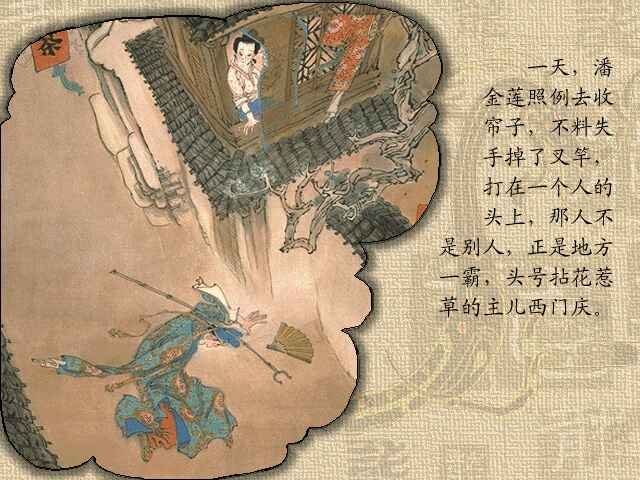 一天，潘
金莲照例去收
帘子，不料失
手掉了叉竿，
打在一个人的
头上，那人不
是别人，正是地方
一霸，头号拈花惹
草的主儿西门庆。
茶